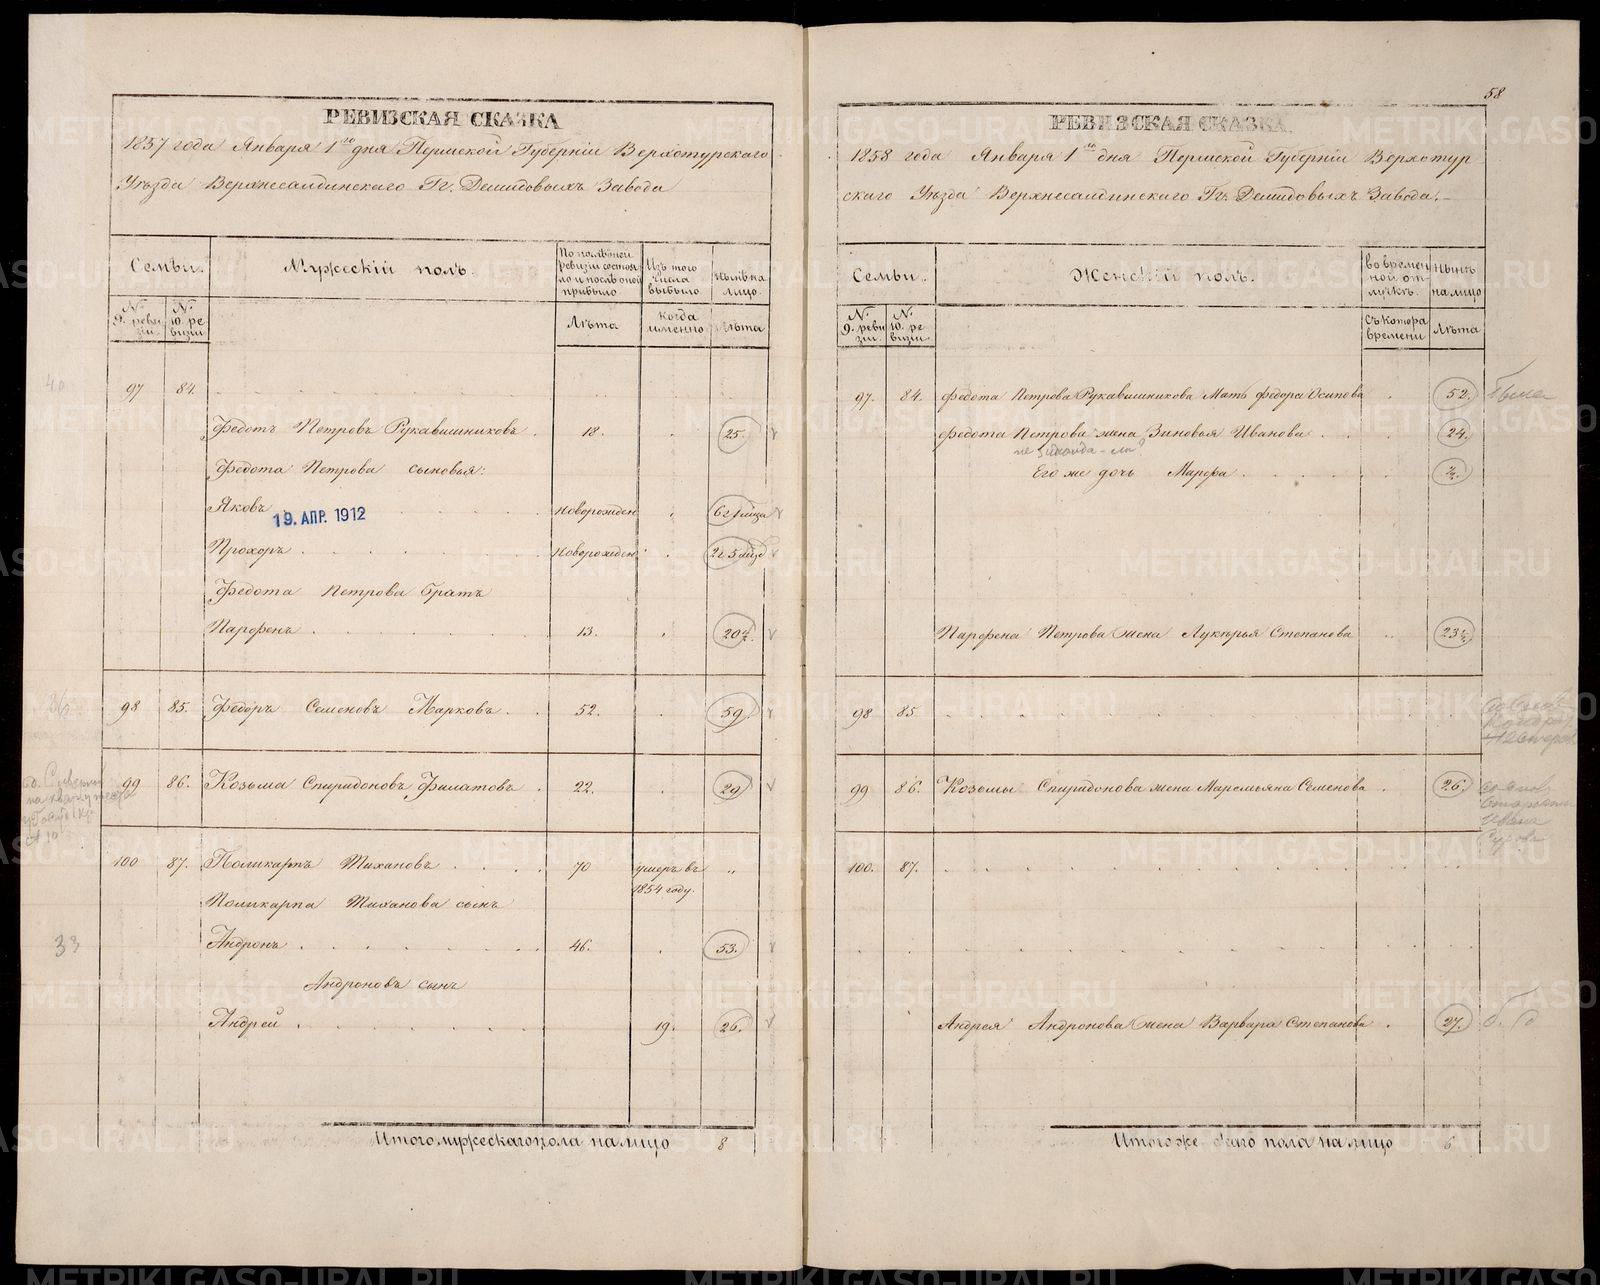 58
РЕВИЗСКАЯ СКАЗКА
1857 года Января 1го дня Пермской Губерніи Верхотурскаго
Уѣзда Верхнесалдинскаго Гг. Демидовыхъ Завода
Семьи.
Мужескій полъ.
По послѣдней ревизіи состояло и послѣ оной прибыло
Изъ того числа выбыло
Нынѣ на лицо.
№ 9. ревизіи.
№ 10. ревизіи
Лѣта
Когда именно
Лѣта
97 84.
Федотъ Петровъ Рукавишниковъ . 18. 25.
Федота Петрова сыновья:
Яковъ новорожден 6 г 1 мѣца
19. АПР. 1912
Прохоръ новорожден. 2 г 5 мѣца
Федота Петрова братъ
Парфенъ 13. 20½.
98 85. Федоръ Семеновъ Марковъ . 52. 59.
99 86. Козьма Спиридоновъ Филатовъ . 22. 29.
100 87. Поликарпъ Тихановъ 70 умеръ въ 1854 году. „
Поликарпа Тиханова сынъ
33
Андронъ 46. 53.
Андроновъ сынъ
Андрей 19. 26.
Итого мужескаго пола на лицо 8
РЕВИЗСКАЯ СКАЗКА
1858 года Января 1го дня Пермской Губерніи Верхотур
скаго Уѣзда Верхнесалдинскаго Гг. Демидовыхъ Завода.
Семьи.
Женскій полъ.
во временной отлучкѣ.
Нынѣ на лицо
№ 9. ревизіи.
№ 10. ревизіи
Съ котора времени
Лѣта
97. 84. Федота Петрова Рукавишникова Мать Федора Осипова 52.
Федота Петрова жена Зиновья Иванова 24.
Его же дочь Марфа ½.
Парфена Петрова жена Лукерья Степанова 23½.
98 85
99 86. Козьмы Спиридонова жена Маремьяна Семенова . 26.
100. 87.
Андрея Андронова жена Варвара Степанова . 27.
Итого же скаго пола на лицо 6
METRIKI.GASO-URAL.RU